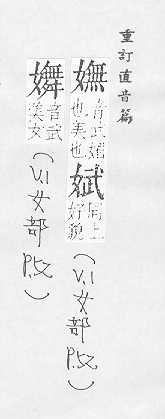 重訂直音篇
嫵 音武嫵也美也 娬 同上好貌(V.1 女部 P.52)
㒇 音武美女(V.1 女部 P.52)